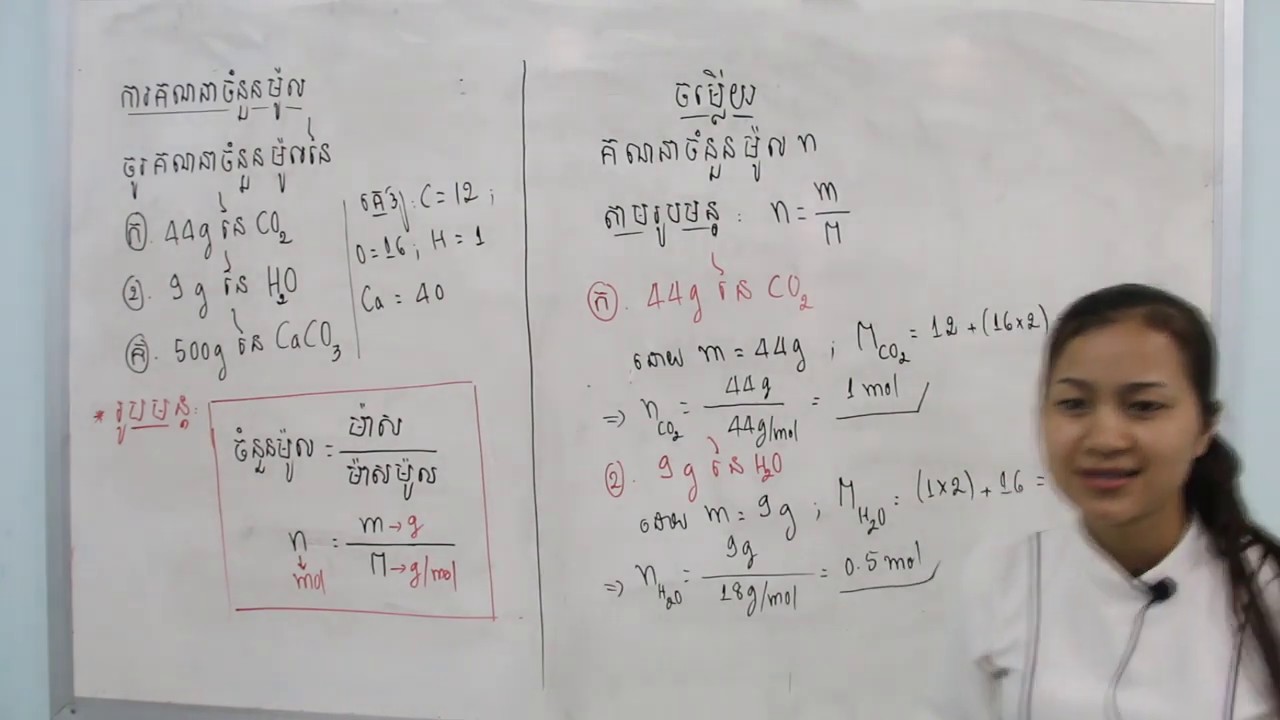 ការគណនាចំនួនម៉ូល
ចូរគណនាចំនួនម៉ូលនៃ
ក. 44g នៃ CO₂
ខ. 9g នៃ H₂O
គ. 500g នៃ CaCO₃
គេឱ្យ : C = 12 ;
O = 16 ; H = 1
Ca = 40
* រូបមន្ត :
ចំនួនម៉ូល = ម៉ាស / ម៉ាសម៉ូល
n = m → g / M → g/mol
mol
ចម្លើយ
គណនាចំនួនម៉ូល n
តាមរូបមន្ត : n = m / M
ក. 44g នៃ CO₂
ដោយ m = 44g ; M CO₂ = 12 + (16×2)
⇒ n CO₂ = 44g / 44g/mol = 1 mol
ខ. 9g នៃ H₂O
ដោយ m = 9g ; M H₂O = (1×2) + 16 =
⇒ n H₂O = 9g / 18g/mol = 0.5 mol